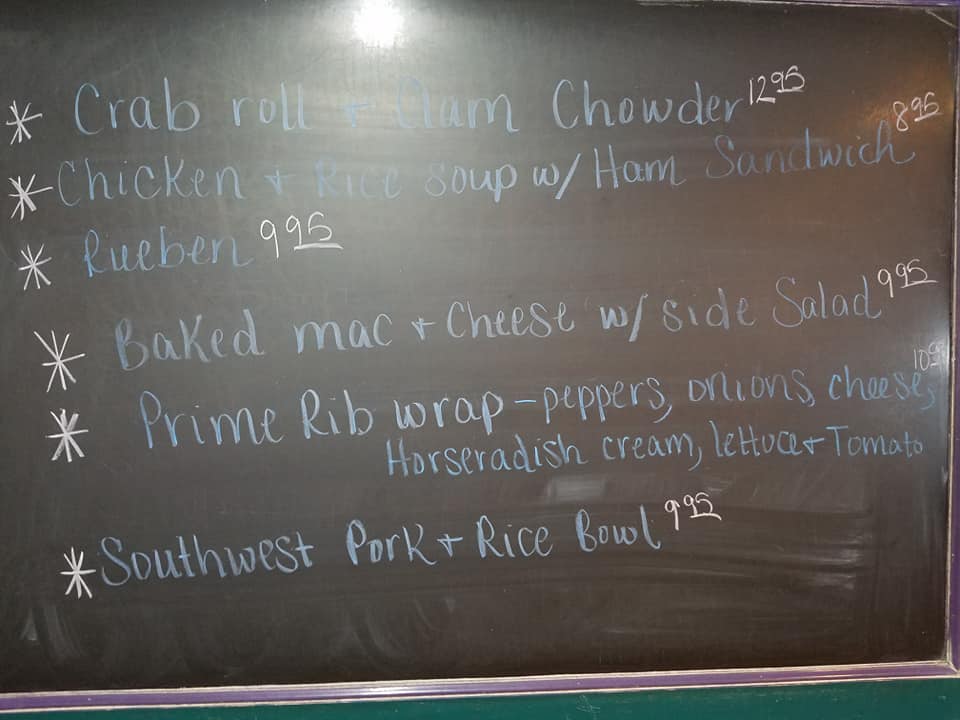 * Crab roll + Clam Chowder 12 95
* Chicken + Rice soup w/ Ham Sandwich 8 95
* Rueben 9 95
* Baked mac + Cheese w/ side Salad 9 95
* Prime Rib wrap - peppers, onions, cheese, 10
Horseradish cream, lettuce + Tomato
* Southwest Pork + Rice Bowl 9 95